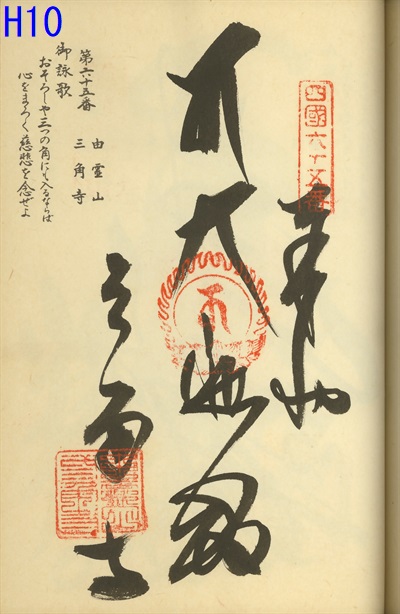 H10
四國六十五番
奉納
大悲殿
三角寺
第六十五番
由霊山
三角寺
御詠歌
おそろしや三つの角にも入るならば
心をまろく慈悲を念ぜよ